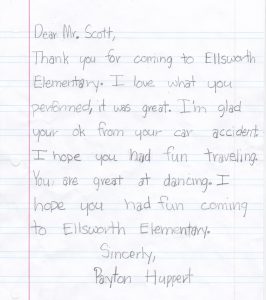 Dear Mr. Scott,
Thank you for coming to Ellsworth
Elementary. I love what you
performed, it was great. I'm glad
your ok from your car accident
I hope you had fun traveling.
You are great at dancing. I
hope you had fun coming
to Ellsworth Elementary.
Sincerly,
Payton Huppert